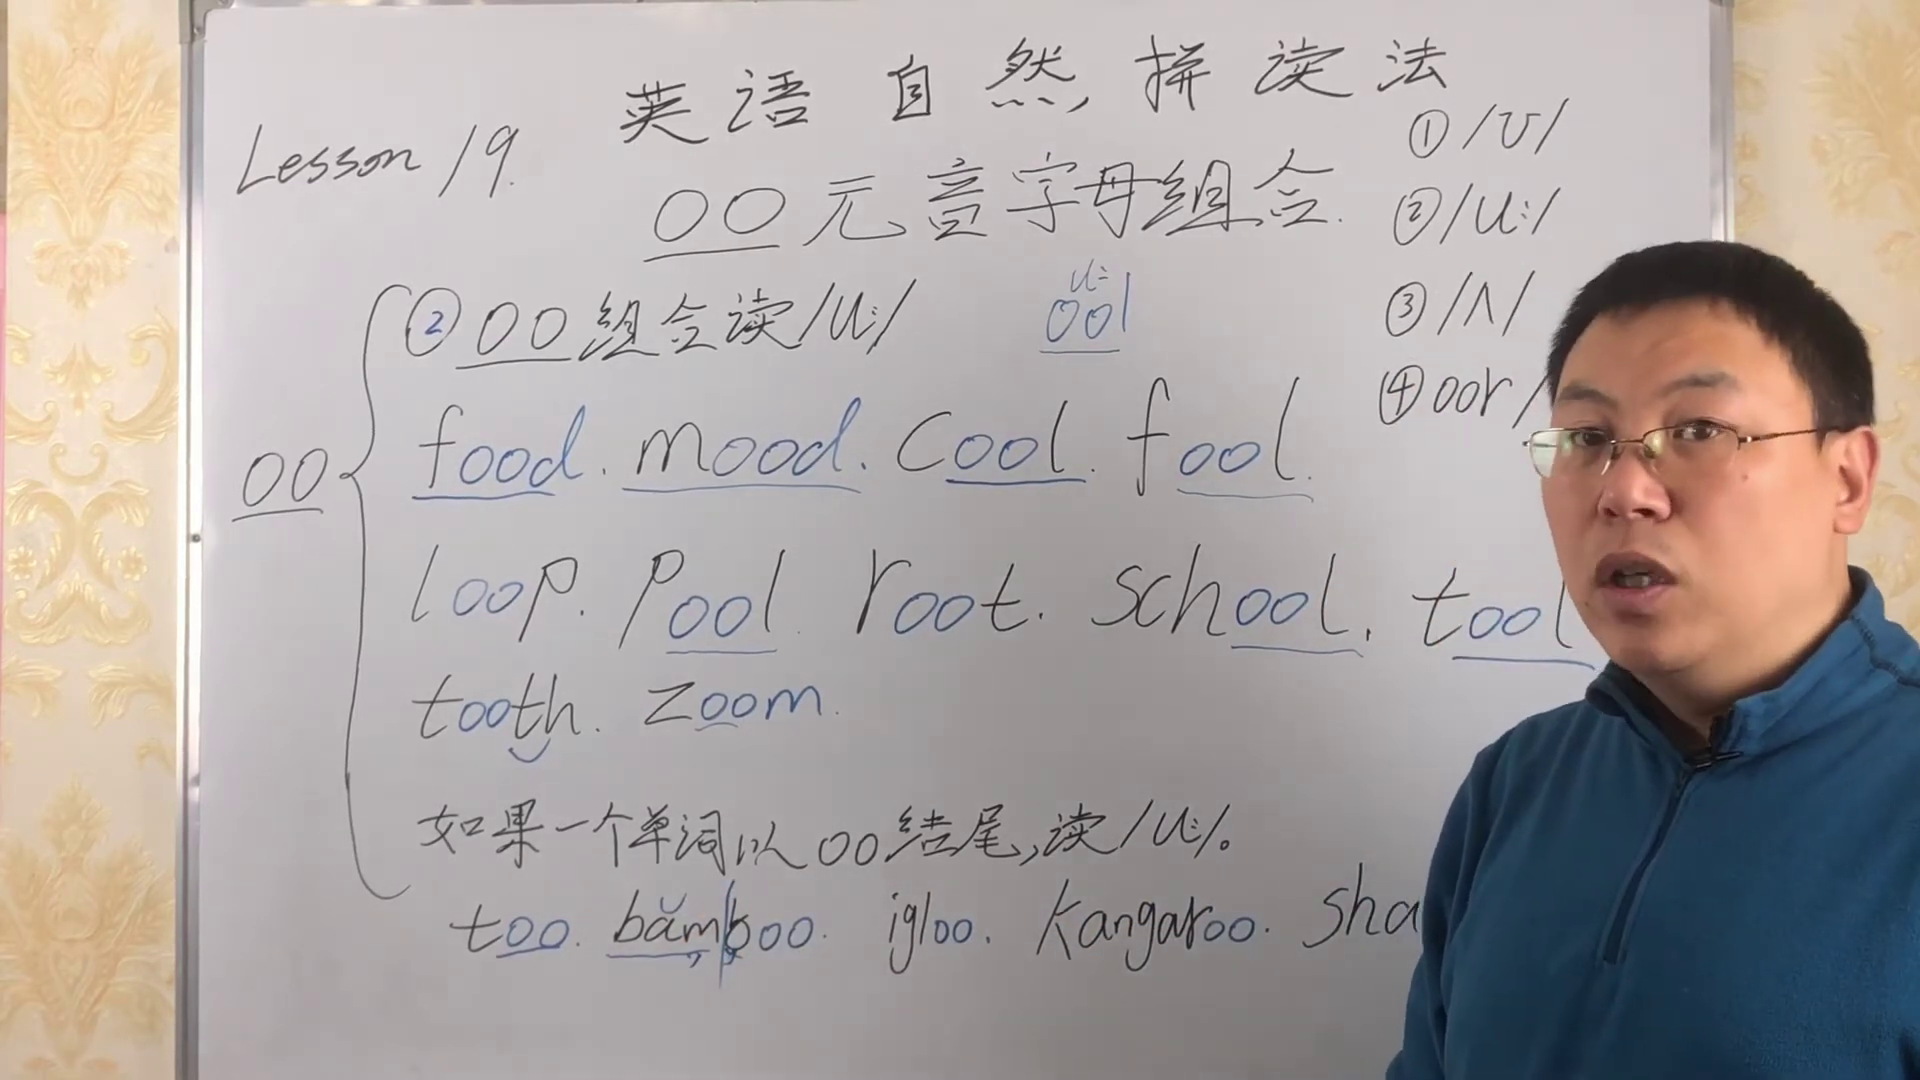 英语自然拼读法
Lesson 19.
oo元音字母组合.
① /ʊ/
② /u:/
③ /ʌ/
④ oor /
② oo组合读/u:/
u:
ool
oo
food. mood. cool. fool.
loop. pool. root. school. tool
tooth. zoom.
如果一个单词以oo结尾,读/u:/。
too. băm|boo. igloo. kangaroo. sha